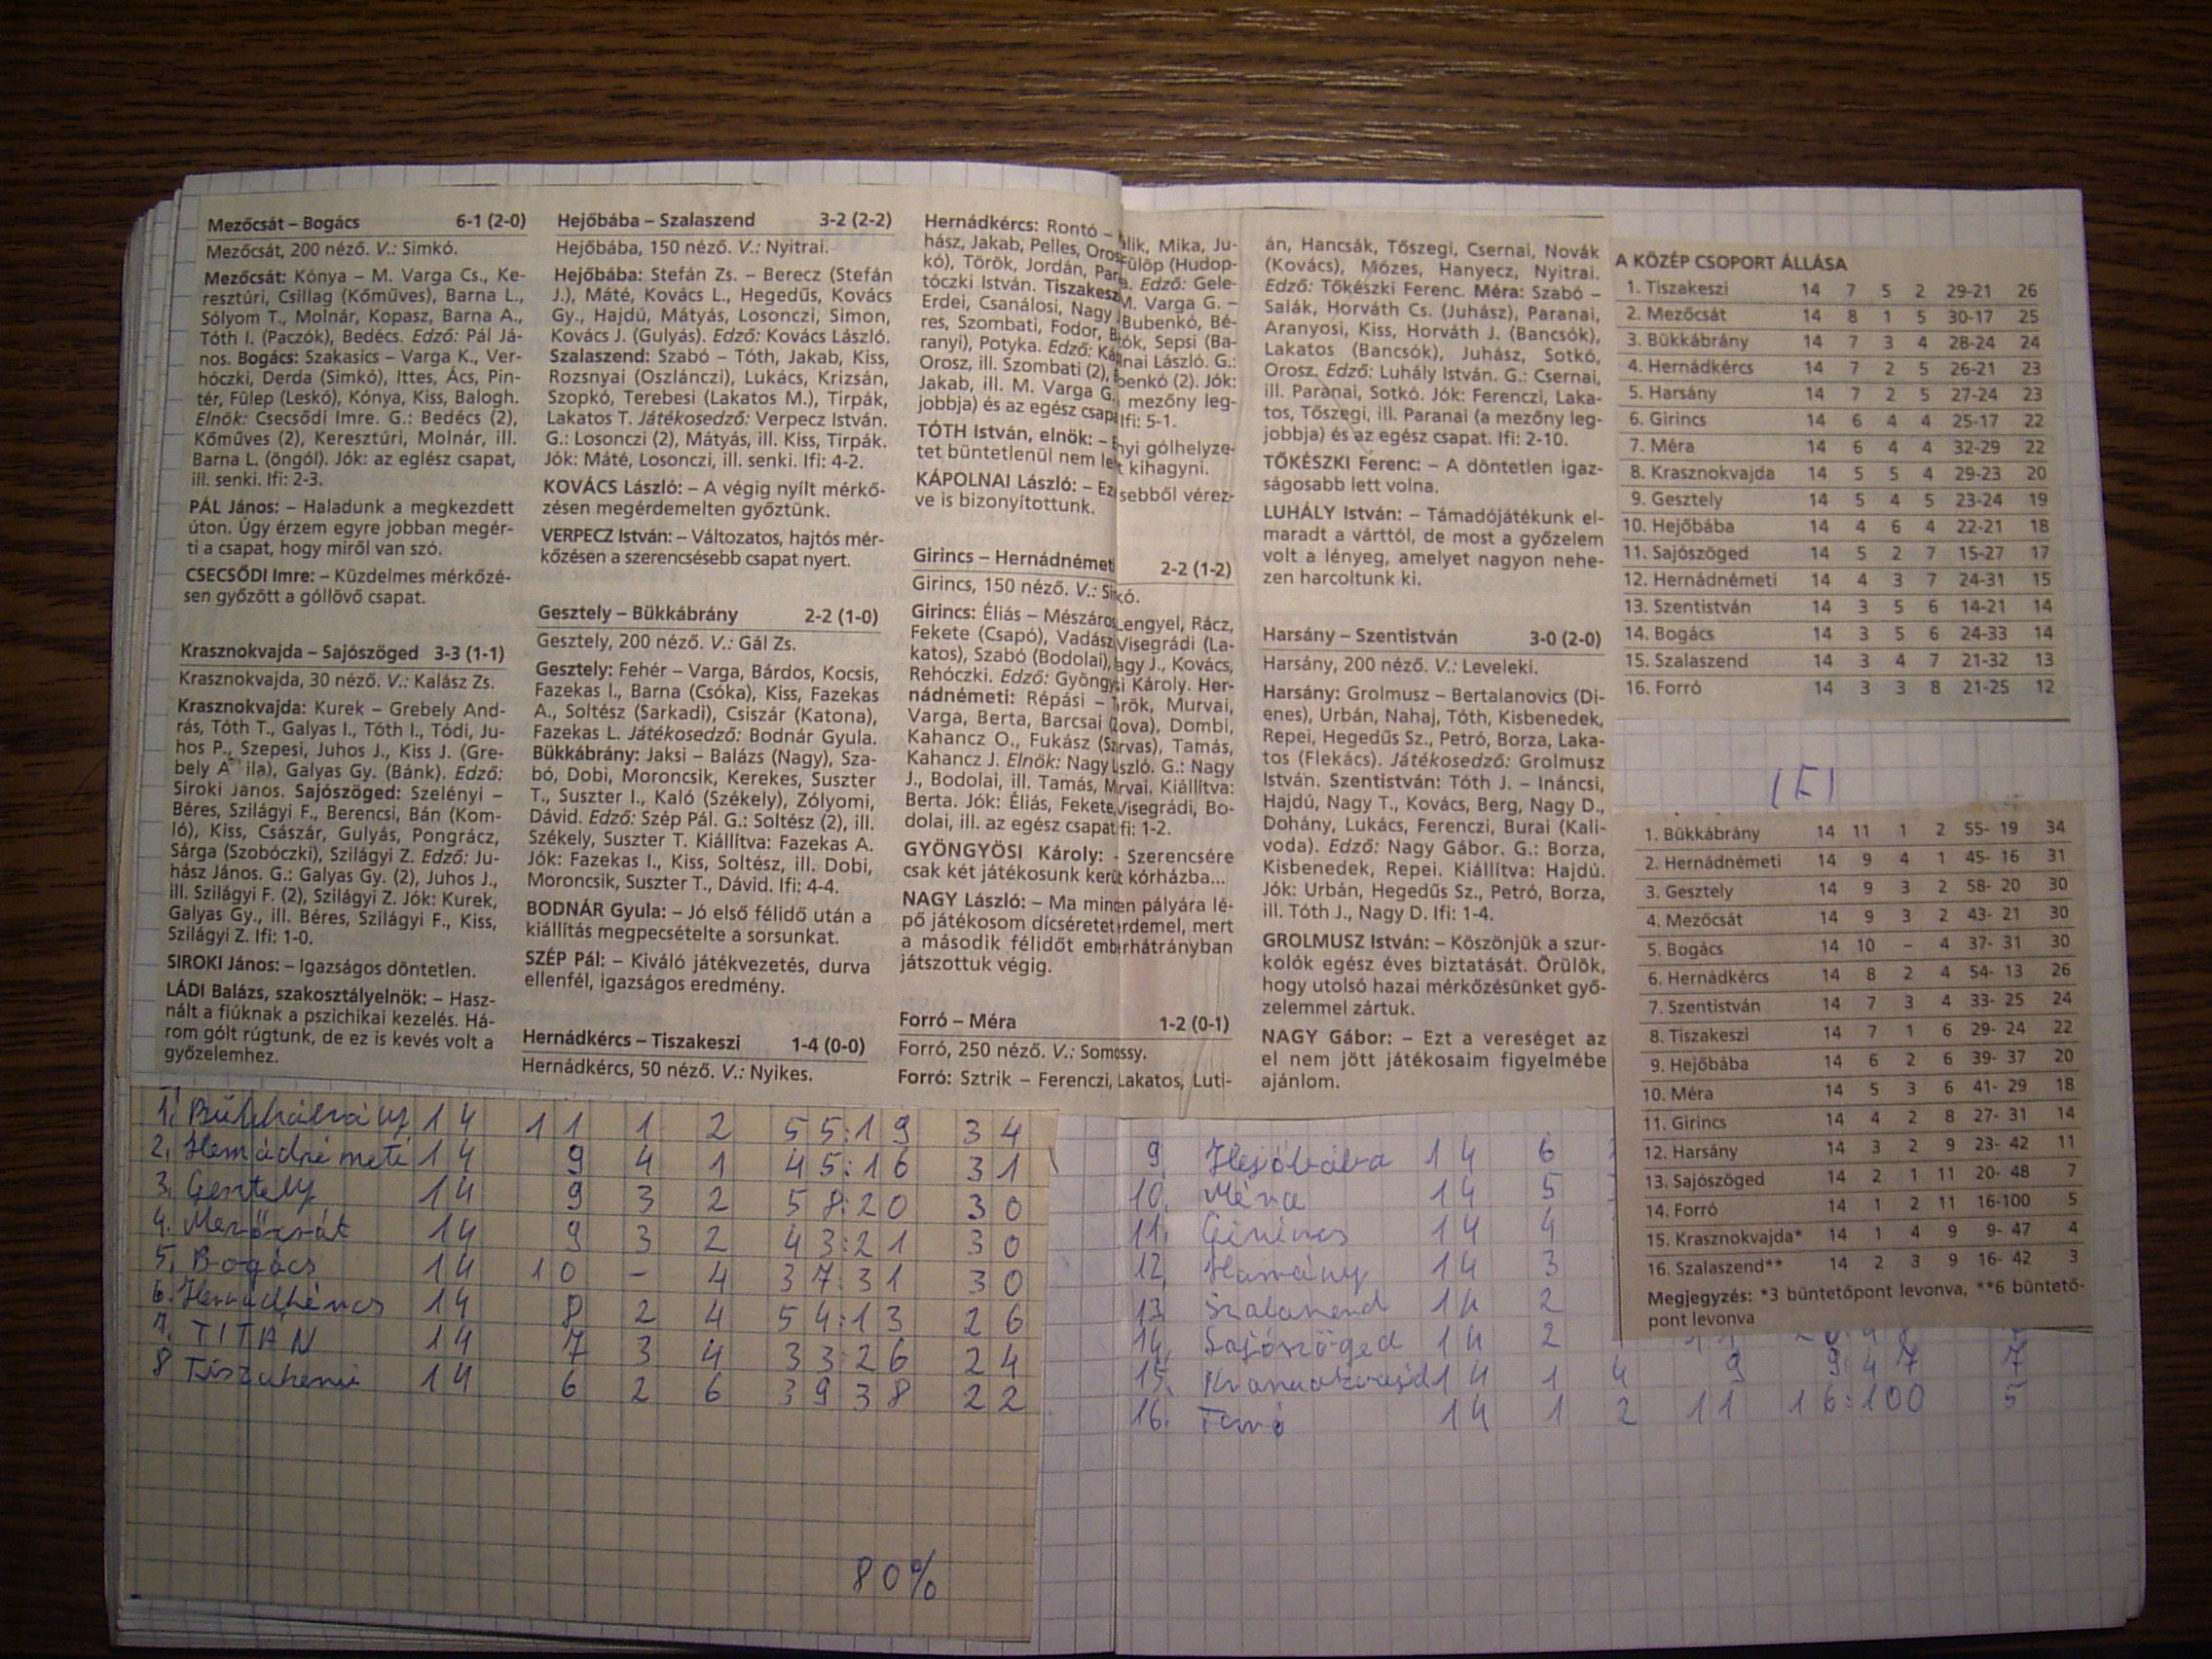 Mezőcsát – Bogács 6-1 (2-0)
Mezőcsát, 200 néző. V.: Simkó.
Mezőcsát: Kónya – M. Varga Cs., Ke-
resztúri, Csillag (Kőműves), Barna L.,
Sólyom T., Molnár, Kopasz, Barna A.,
Tóth I. (Paczók), Bedécs. Edző: Pál Já-
nos. Bogács: Szakasics – Varga K., Ver-
hóczki, Derda (Simkó), Ittes, Ács, Pin-
tér, Fülep (Leskó), Kónya, Kiss, Balogh.
Elnök: Csecsődi Imre. G.: Bedécs (2),
Kőműves (2), Keresztúri, Molnár, ill.
Barna L. (öngól). Jók: az eglész csapat,
ill. senki. Ifi: 2-3.
PÁL János: – Haladunk a megkezdett
úton. Úgy érzem egyre jobban megér-
ti a csapat, hogy miről van szó.
CSECSŐDI Imre: – Küzdelmes mérkőzé-
sen győzött a góllövő csapat.
Krasznokvajda – Sajószöged 3-3 (1-1)
Krasznokvajda, 30 néző. V.: Kalász Zs.
Krasznokvajda: Kurek – Grebely And-
rás, Tóth T., Galyas I., Tóth I., Tódi, Ju-
hos P., Szepesi, Juhos J., Kiss J. (Gre-
bely A ila), Galyas Gy. (Bánk). Edző:
Siroki János. Sajószöged: Szelényi –
Béres, Szilágyi F., Berencsi, Bán (Kom-
ló), Kiss, Császár, Gulyás, Pongrácz,
Sárga (Szobóczki), Szilágyi Z. Edző: Ju-
hász János. G.: Galyas Gy. (2), Juhos J.,
ill. Szilágyi F. (2), Szilágyi Z. Jók: Kurek,
Galyas Gy., ill. Béres, Szilágyi F., Kiss,
Szilágyi Z. Ifi: 1-0.
SIROKI János: – Igazságos döntetlen.
LÁDI Balázs, szakosztályelnök: – Hasz-
nált a fiúknak a pszichikai kezelés. Há-
rom gólt rúgtunk, de ez is kevés volt a
győzelemhez.
Hejőbába – Szalaszend 3-2 (2-2)
Hejőbába, 150 néző. V.: Nyitrai.
Hejőbába: Stefán Zs. – Berecz (Stefán
J.), Máté, Kovács L., Hegedűs, Kovács
Gy., Hajdú, Mátyás, Losonczi, Simon,
Kovács J. (Gulyás). Edző: Kovács László.
Szalaszend: Szabó – Tóth, Jakab, Kiss,
Rozsnyai (Oszlánczi), Lukács, Krizsán,
Szopkó, Terebesi (Lakatos M.), Tirpák,
Lakatos T. Játékosedző: Verpecz István.
G.: Losonczi (2), Mátyás, ill. Kiss, Tirpák.
Jók: Máté, Losonczi, ill. senki. Ifi: 4-2.
KOVÁCS László: – A végig nyílt mérkő-
zésen megérdemelten győztünk.
VERPECZ István: – Változatos, hajtós mér-
kőzésen a szerencsésebb csapat nyert.
Gesztely – Bükkábrány 2-2 (1-0)
Gesztely, 200 néző. V.: Gál Zs.
Gesztely: Fehér – Varga, Bárdos, Kocsis,
Fazekas I., Barna (Csóka), Kiss, Fazekas
A., Soltész (Sarkadi), Csiszár (Katona),
Fazekas L. Játékosedző: Bodnár Gyula.
Bükkábrány: Jaksi – Balázs (Nagy), Sza-
bó, Dobi, Moroncsik, Kerekes, Suszter
T., Suszter I., Kaló (Székely), Zólyomi,
Dávid. Edző: Szép Pál. G.: Soltész (2), ill.
Székely, Suszter T. Kiállítva: Fazekas A.
Jók: Fazekas I., Kiss, Soltész, ill. Dobi,
Moroncsik, Suszter T., Dávid. Ifi: 4-4.
BODNÁR Gyula: – Jó első félidő után a
kiállítás megpecsételte a sorsunkat.
SZÉP Pál: – Kiváló játékvezetés, durva
ellenfél, igazságos eredmény.
Hernádkércs – Tiszakeszi 1-4 (0-0)
Hernádkércs, 50 néző. V.: Nyikes.
Hernádkércs: Rontó – álik, Mika, Ju-
hász, Jakab, Pelles, Oros Fülöp (Hudop-
kó), Török, Jordán, Par a. Edző: Gele-
tóczki István. Tiszakesz M. Varga G. –
Erdei, Csanálosi, Nagy Bubenkó, Bé-
res, Szombati, Fodor, B tók, Sepsi (Ba-
ranyi), Potyka. Edző: Ká lnai László. G.:
Orosz, ill. Szombati (2), benkó (2). Jók:
Jakab, ill. M. Varga G. mezőny leg-
jobbja) és az egész csapa Ifi: 5-1.
TÓTH István, elnök: – nyi gólhelyze-
tet büntetlenül nem le t kihagyni.
KÁPOLNAI László: – Ez sebből vérez-
ve is bizonyítottunk.
Girincs – Hernádnémeti 2-2 (1-2)
Girincs, 150 néző. V.: Sikó.
Girincs: Éliás – Mészáros Lengyel, Rácz,
Fekete (Csapó), Vadász Visegrádi (La-
katos), Szabó (Bodolai), agy J., Kovács,
Rehóczki. Edző: Gyöngysi Károly. Her-
nádnémeti: Répási – Török, Murvai,
Varga, Berta, Barcsai (Zova), Dombi,
Kahancz O., Fukász (Szarvas), Tamás,
Kahancz J. Elnök: Nagy László. G.: Nagy
J., Bodolai, ill. Tamás, Mrvai. Kiállítva:
Berta. Jók: Éliás, Fekete, Visegrádi, Bo-
dolai, ill. az egész csapat fi: 1-2.
GYÖNGYÖSI Károly: – Szerencsére
csak két játékosunk került kórházba...
NAGY László: – Ma minden pályára lé-
pő játékosom dicséretet rdemel, mert
a második félidőt emb rhátrányban
játszottuk végig.
Forró – Méra 1-2 (0-1)
Forró, 250 néző. V.: Somossy.
Forró: Sztrik – Ferenczi, Lakatos, Luti-
án, Hancsák, Tőszegi, Csernai, Novák
(Kovács), Mózes, Hanyecz, Nyitrai.
Edző: Tőkészki Ferenc. Méra: Szabó –
Salák, Horváth Cs. (Juhász), Paranai,
Aranyosi, Kiss, Horváth J. (Bancsók),
Lakatos (Bancsók), Juhász, Sotkó,
Orosz. Edző: Luhály István. G.: Csernai,
ill. Paranai, Sotkó. Jók: Ferenczi, Laka-
tos, Tőszegi, ill. Paranai (a mezőny leg-
jobbja) és az egész csapat. Ifi: 2-10.
TŐKÉSZKI Ferenc: – A döntetlen igaz-
ságosabb lett volna.
LUHÁLY István: – Támadójátékunk el-
maradt a várttól, de most a győzelem
volt a lényeg, amelyet nagyon nehe-
zen harcoltunk ki.
Harsány – Szentistván 3-0 (2-0)
Harsány, 200 néző. V.: Leveleki.
Harsány: Grolmusz – Bertalanovics (Di-
enes), Urbán, Nahaj, Tóth, Kisbenedek,
Repei, Hegedűs Sz., Petró, Borza, Laka-
tos (Flekács). Játékosedző: Grolmusz
István. Szentistván: Tóth J. – Ináncsi,
Hajdú, Nagy T., Kovács, Berg, Nagy D.,
Dohány, Lukács, Ferenczi, Burai (Kali-
voda). Edző: Nagy Gábor. G.: Borza,
Kisbenedek, Repei. Kiállítva: Hajdú.
Jók: Urbán, Hegedűs Sz., Petró, Borza,
ill. Tóth J., Nagy D. Ifi: 1-4.
GROLMUSZ István: – Köszönjük a szur-
kolók egész éves biztatását. Örülök,
hogy utolsó hazai mérkőzésünket győ-
zelemmel zártuk.
NAGY Gábor: – Ezt a vereséget az
el nem jött játékosaim figyelmébe
ajánlom.
A KÖZÉP CSOPORT ÁLLÁSA
1. Tiszakeszi 14 7 5 2 29-21 26
2. Mezőcsát 14 8 1 5 30-17 25
3. Bükkábrány 14 7 3 4 28-24 24
4. Hernádkércs 14 7 2 5 26-21 23
5. Harsány 14 7 2 5 27-24 23
6. Girincs 14 6 4 4 25-17 22
7. Méra 14 6 4 4 32-29 22
8. Krasznokvajda 14 5 5 4 29-23 20
9. Gesztely 14 5 4 5 23-24 19
10. Hejőbába 14 4 6 4 22-21 18
11. Sajószöged 14 5 2 7 15-27 17
12. Hernádnémeti 14 4 3 7 24-31 15
13. Szentistván 14 3 5 6 14-21 14
14. Bogács 14 3 5 6 24-33 14
15. Szalaszend 14 3 4 7 21-32 13
16. Forró 14 3 3 8 21-25 12
1. Bükkábrány 14 11 1 2 55- 19 34
2. Hernádnémeti 14 9 4 1 45- 16 31
3. Gesztely 14 9 3 2 58- 20 30
4. Mezőcsát 14 9 3 2 43- 21 30
5. Bogács 14 10 – 4 37- 31 30
6. Hernádkércs 14 8 2 4 54- 13 26
7. Szentistván 14 7 3 4 33- 25 24
8. Tiszakeszi 14 7 1 6 29- 24 22
9. Hejőbába 14 6 2 6 39- 37 20
10. Méra 14 5 3 6 41- 29 18
11. Girincs 14 4 2 8 27- 31 14
12. Harsány 14 3 2 9 23- 42 11
13. Sajószöged 14 2 1 11 20- 48 7
14. Forró 14 1 2 11 16-100 5
15. Krasznokvajda* 14 1 4 9 9- 47 4
16. Szalaszend** 14 2 3 9 16- 42 3
Megjegyzés: *3 büntetőpont levonva, **6 büntető-
pont levonva
1. Bükkábrány 14 11 1 2 55:19 34
2. Hernádnémeti 14 9 4 1 45:16 31
3. Gesztely 14 9 3 2 58:20 30
4. Mezőcsát 14 9 3 2 43:21 30
5. Bogács 14 10 – 4 37:31 30
6. Hernádkércs 14 8 2 4 54:13 26
7. TITÁN 14 7 3 4 33:26 24
8 Tiszakeszi 14 6 2 6 39 38 22
80%
9 Hejőbába 14 6
10. Méra 14 5
11. Girincs 14 4
12. Harsány 14 3
13. Szalaszend 14 2
14. Sajószöged 14 2 11 20:48 7
15. Krasznokvajda 14 1 4 9 9:47 7
16. Forró 14 1 2 11 16:100 5